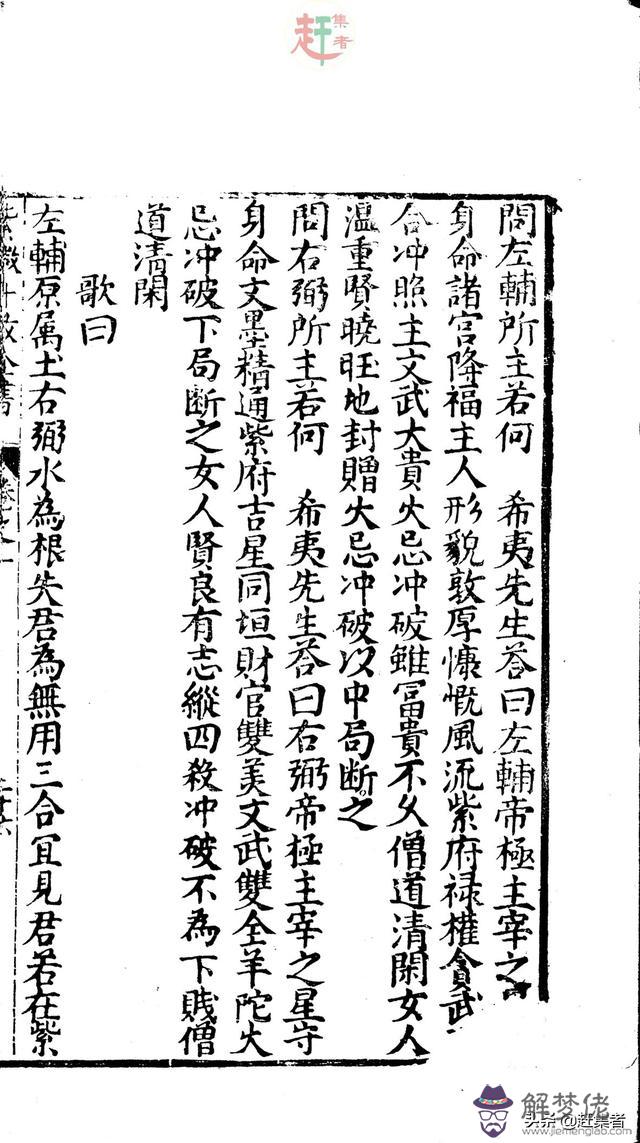 赶集者
問左輔所主若何　希夷先生荅曰左輔帝極主宰之
身命諸宮降福主人形貌敦厚慷慨風流紫府祿權貪武
合冲照主文武大貴火忌冲破雖冨貴不久僧道清閑女人
溫重賢曉旺地封贈火忌冲破以中局断之
問右弼所主若何　希夷先生荅曰右弼帝極主宰之星守
身命文墨精通紫府吉星同垣財官雙美文武雙全羊陀火
忌冲破下局断之女人賢良有志縱四殺冲破不為下賎僧
道清閑
歌曰
左輔原属土右弼水為根失君為無用三合冝見君若在紫
紫微斗数全書
解梦佬
头条@赶集者
www.jiemenglab.com